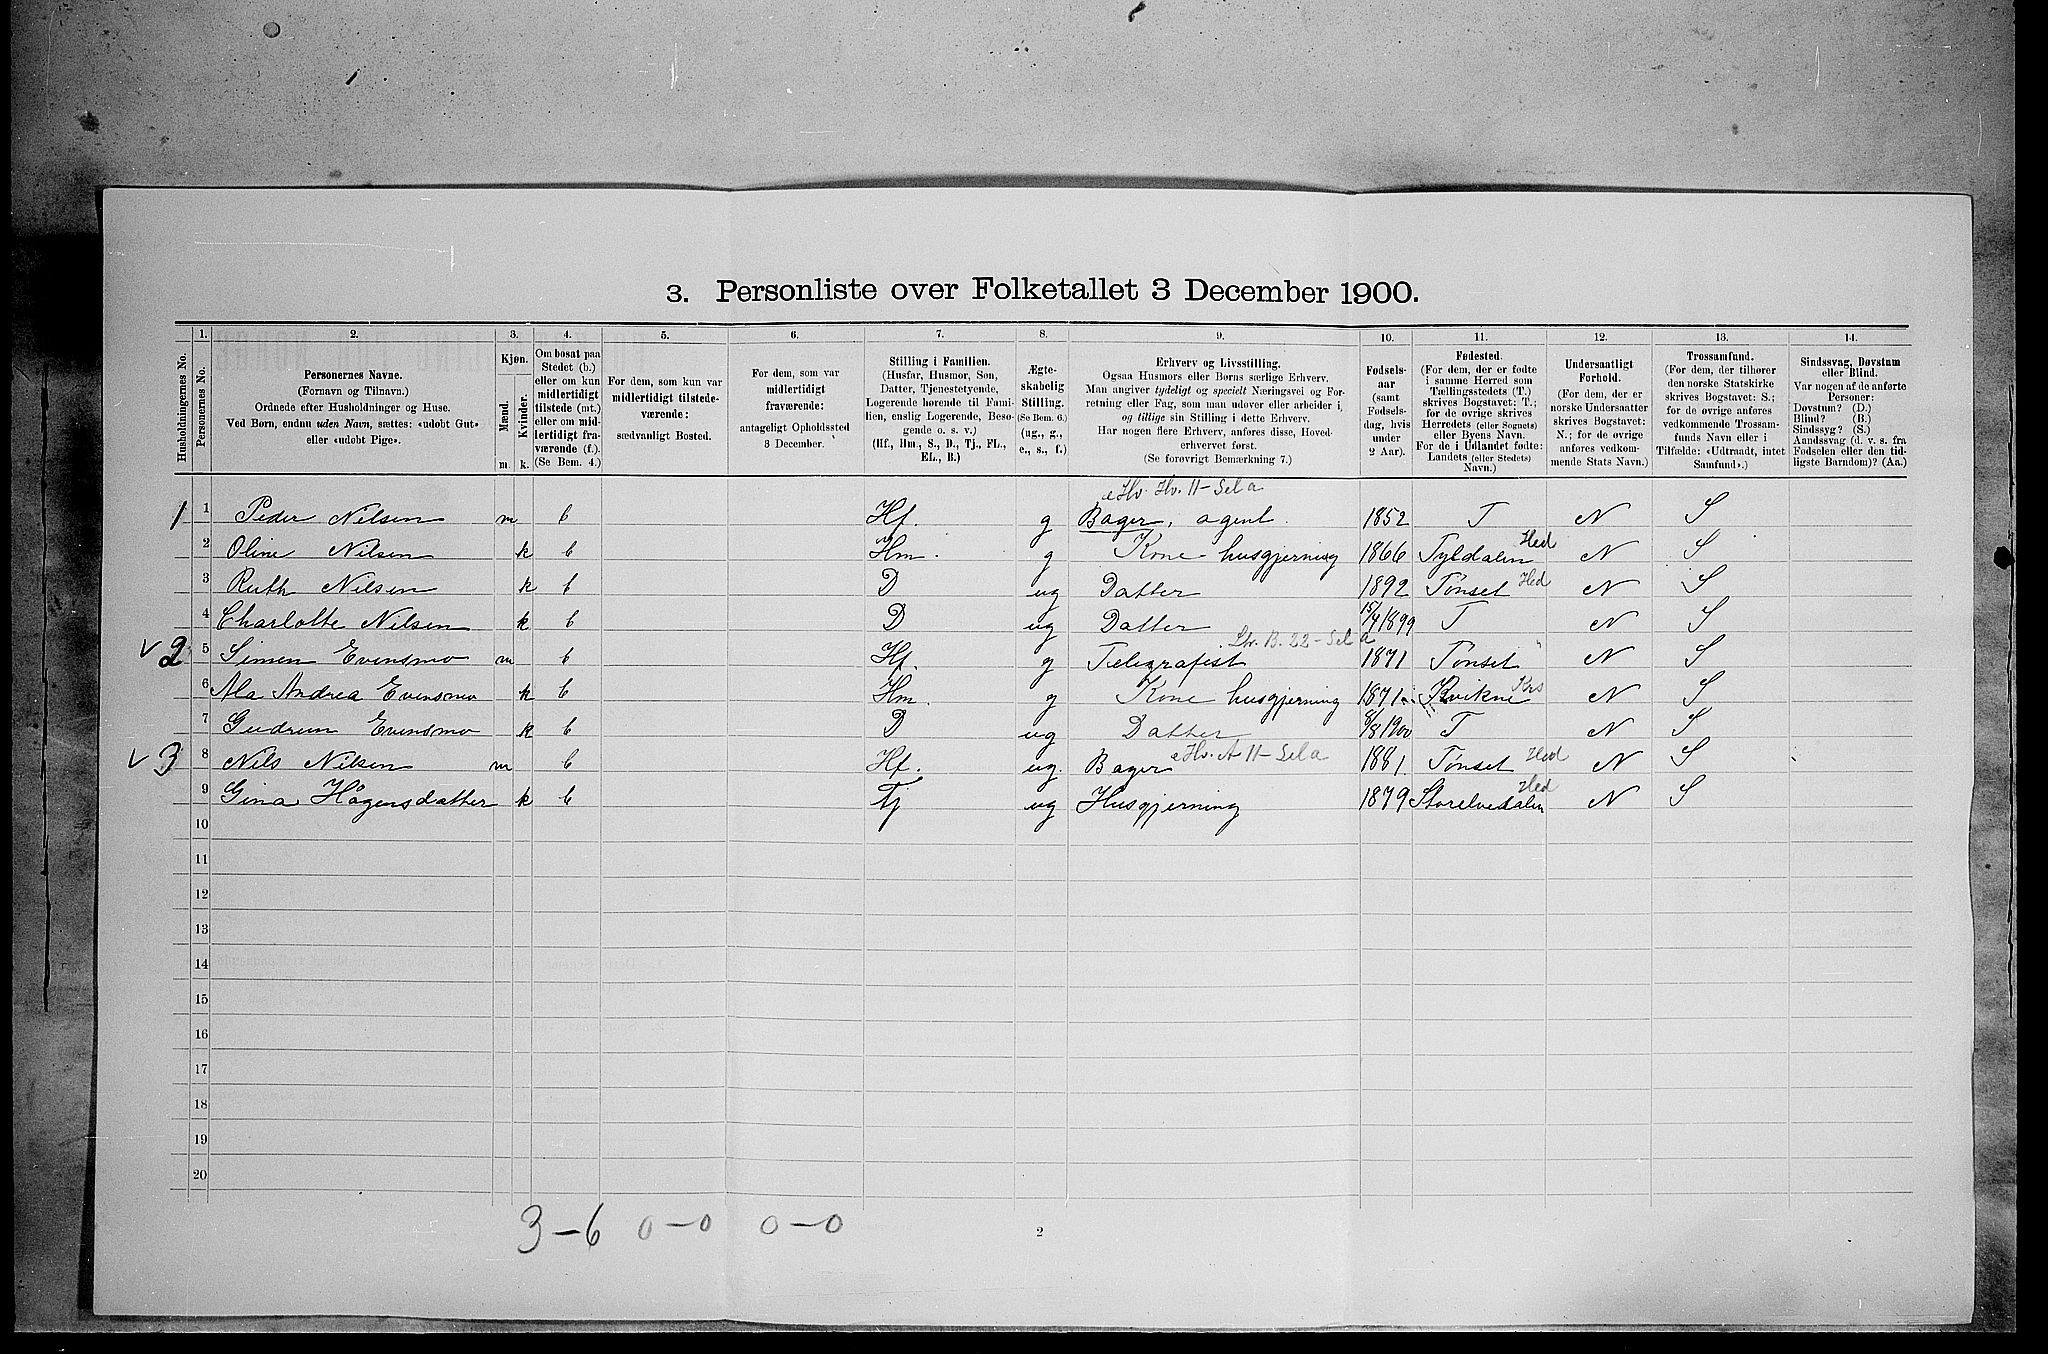 3. Personliste over Folketallet 3 December 1900.
Husholdningernes No.
1.
Personernes No.
2.
Personernes Navne.
(Fornavn og Tilnavn.)
Ordnede efter Husholdninger og Huse.
Ved Børn, endnu uden Navn, sættes: «udøbt Gut»
eller «udøbt Pige».
3.
Kjøn.
Mænd.
Kvinder.
m. k.
4.
Om bosat paa
Stedet (b.)
eller om kun
midlertidigt
tilstede (mt.)
eller om mid-
lertidigt fra-
værende (f.).
(Se Bem. 4.)
5.
For dem, som kun var
midlertidigt tilstede-
værende:
sædvanligt Bosted.
6.
For dem, som var
midlertidigt
fraværende:
antageligt Opholdssted
3 December.
7.
Stilling i Familien.
(Husfar, Husmor, Søn,
Datter, Tjenestetyende,
Logerende hørende til Fami-
lien, enslig Logerende, Besø-
gende o. s. v.)
(Hf., Hm., S., D., Tj., FL.,
EL., B.)
8.
Ægte-
skabelig
Stilling.
(Se Bem. 6.)
(ug., g.,
e., s., f.)
9.
Erhverv og Livsstilling.
Ogsaa Husmors eller Børns særlige Erhverv.
Man angiver tydeligt og specielt Næringsvei og For-
retning eller Fag, som man udøver eller arbeider i,
og tillige sin Stilling i dette Erhverv.
Har nogen flere Erhverv, anføres disse, Hoved-
erhvervet først.
(Se forøvrigt Bemærkning 7.)
10.
Fødsels-
aar
(samt
Fødsels-
dag, hvis
under
2 Aar).
11.
Fødested.
(For dem, der er fødte
i samme Herred som
Tællingsstedets (T.)
skrives Bogstavet: T.;
for de øvrige skrives
Herredets (eller Sognets)
eller Byens Navn.
For de i Udlandet fødte:
Landets (eller Stedets)
Navn.)
12.
Undersaatligt
Forhold.
(For dem, der er
norske Undersaatter
skrives Bogstavet:
N.; for de øvrige
anføres vedkom-
mende Stats Navn.)
13.
Trossamfund.
(For dem, der tilhører
den norske Statskirke
skrives Bogstavet: S.;
for de øvrige anføres
vedkommende Trossam-
funds Navn eller i
Tilfælde: «Udtraadt, intet
Samfund».)
14.
Sindssvag, Døvstum
eller Blind.
Var nogen af de anførte
Personer:
Døvstum? (D.)
Blind? (B.)
Sindssyg? (S.)
Aandssvag (d. v. s. fra
Fødselen eller den tid-
ligste Barndom)? (Aa.)
Hv. 11 - Sel a
1 1 Peder Nilsen m b Hf. g Bager, agent. 1852 T N S
2 Oline Nilsen k b Hm. g Kone - husgjerning 1866 Tyldalen Hed N S
3 Ruth Nilsen k b D ug Datter 1892 Tønset Hed N S
4 Charlotte Nilsen k b D ug Datter 15/4 1899 T N S
B. 22 - Sel a
2 5 Simen Evensmo m b Hf. g Telegrafist 1871 Tønset " N S
6 Ala Andrea Evensmo k b Hm. g Kone husgjerning 1871. Kvikne Krs N S
7 Gudrun Evensmo k b D ug Datter 8/8 1900 T N S
3 8 Nils Nilsen m b Hf. ug. Bager Hv. A 11 - Sel a 1881. Tønset Hed N S
9 Gina Hågensdatter k b Tj ug Husgjerning 1879 Storelvedalen Hed N S
10
11
12
13
14
15
16
17
18
19
20
3-6 0-0 0-0
2